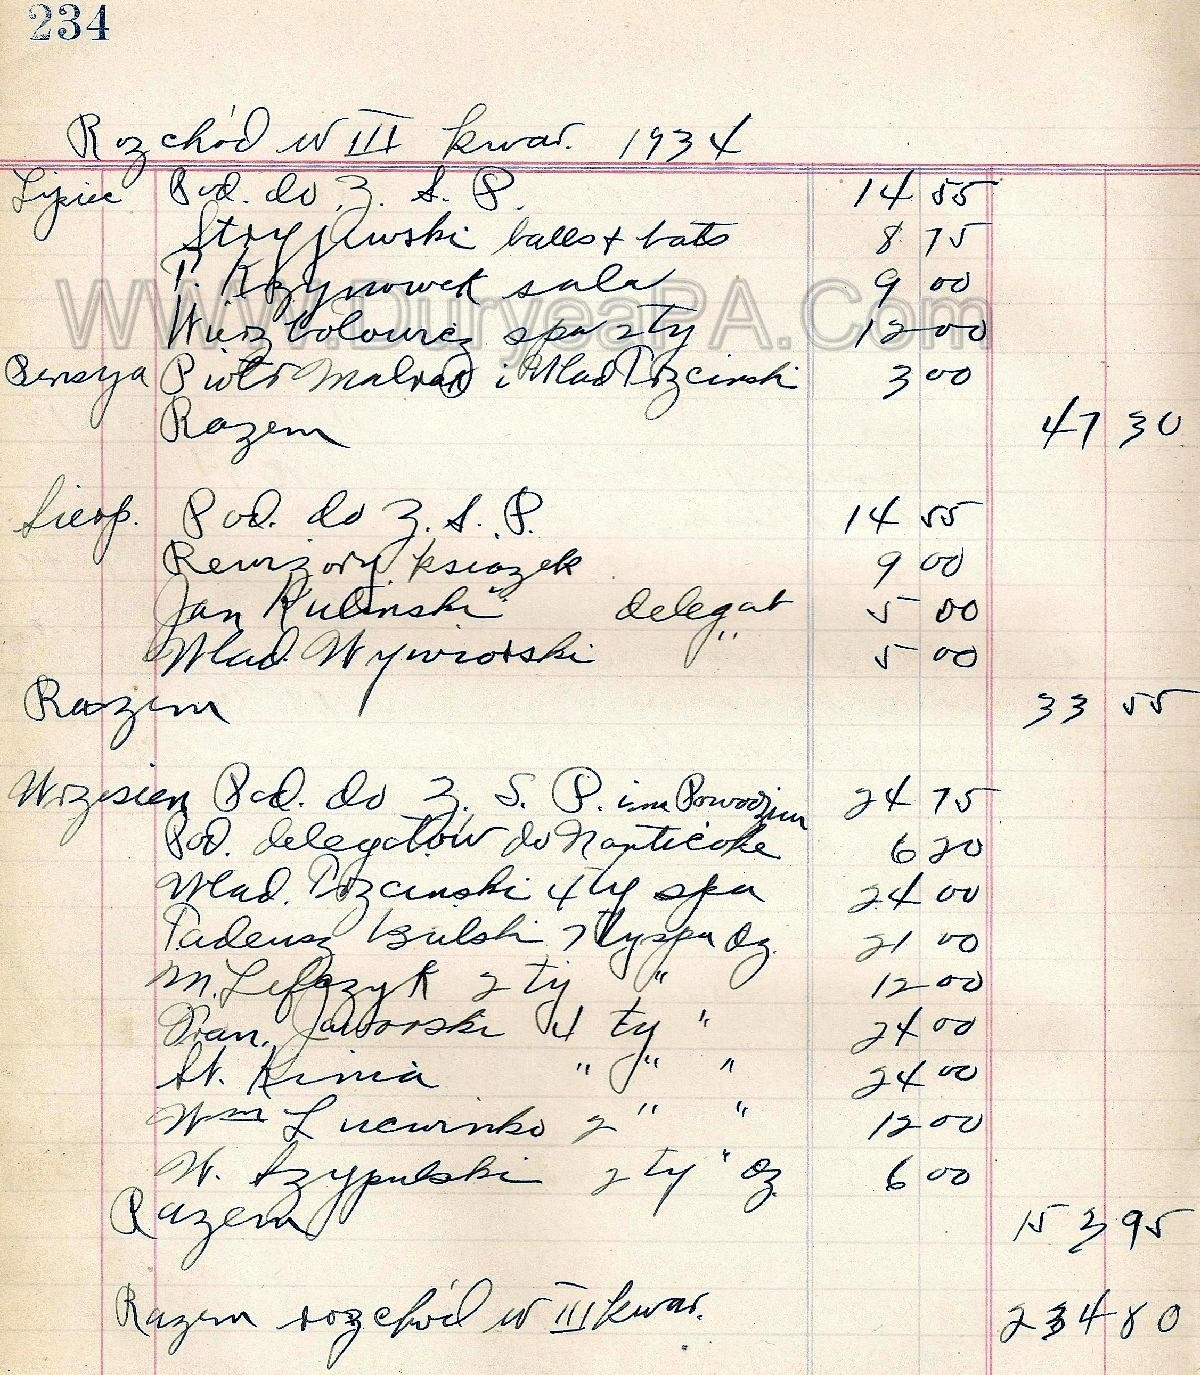 234
Rozchód w III kwar. 1934
Lipiec Pod. do Z. S. P. 14 55
Stryjewski balls + bats 8 75
T. Krzynowek sala 9 00
WWW.DuryeaPA.Com
spa 2 ty 12 00
Pensya Piotr i Wlad Trzcinski 3 00
Razem 47 30
Sierp. Pod. do Z. S. P. 14 55
Rewizory ksiazek 9 00
Jan Rutinski delegat 5 00
Wlad. Wywiorski " 5 00
Razem 33 55
Wrzesien Pod. do Z. S. P. 24 75
Pod. delegatów do Nanticoke 6 20
Wlad. Trzcinski 4 ty spa 24 00
Tadeusz Bulski 7 ty spa dz. 21 00
M. Lefczyk 2 ty " 12 00
Fran. Jaworski 4 ty " 24 00
St. Kinia " " " 24 00
Wm 2 " " 12 00
W. Szypulski 2 ty " dz. 6 00
Razem 153 95
Razem rozchód w III kwar. 234 80